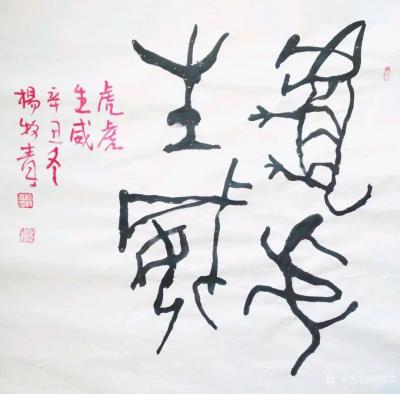 虎虎
生威
虎虎
生威
辛丑冬
楊牧青